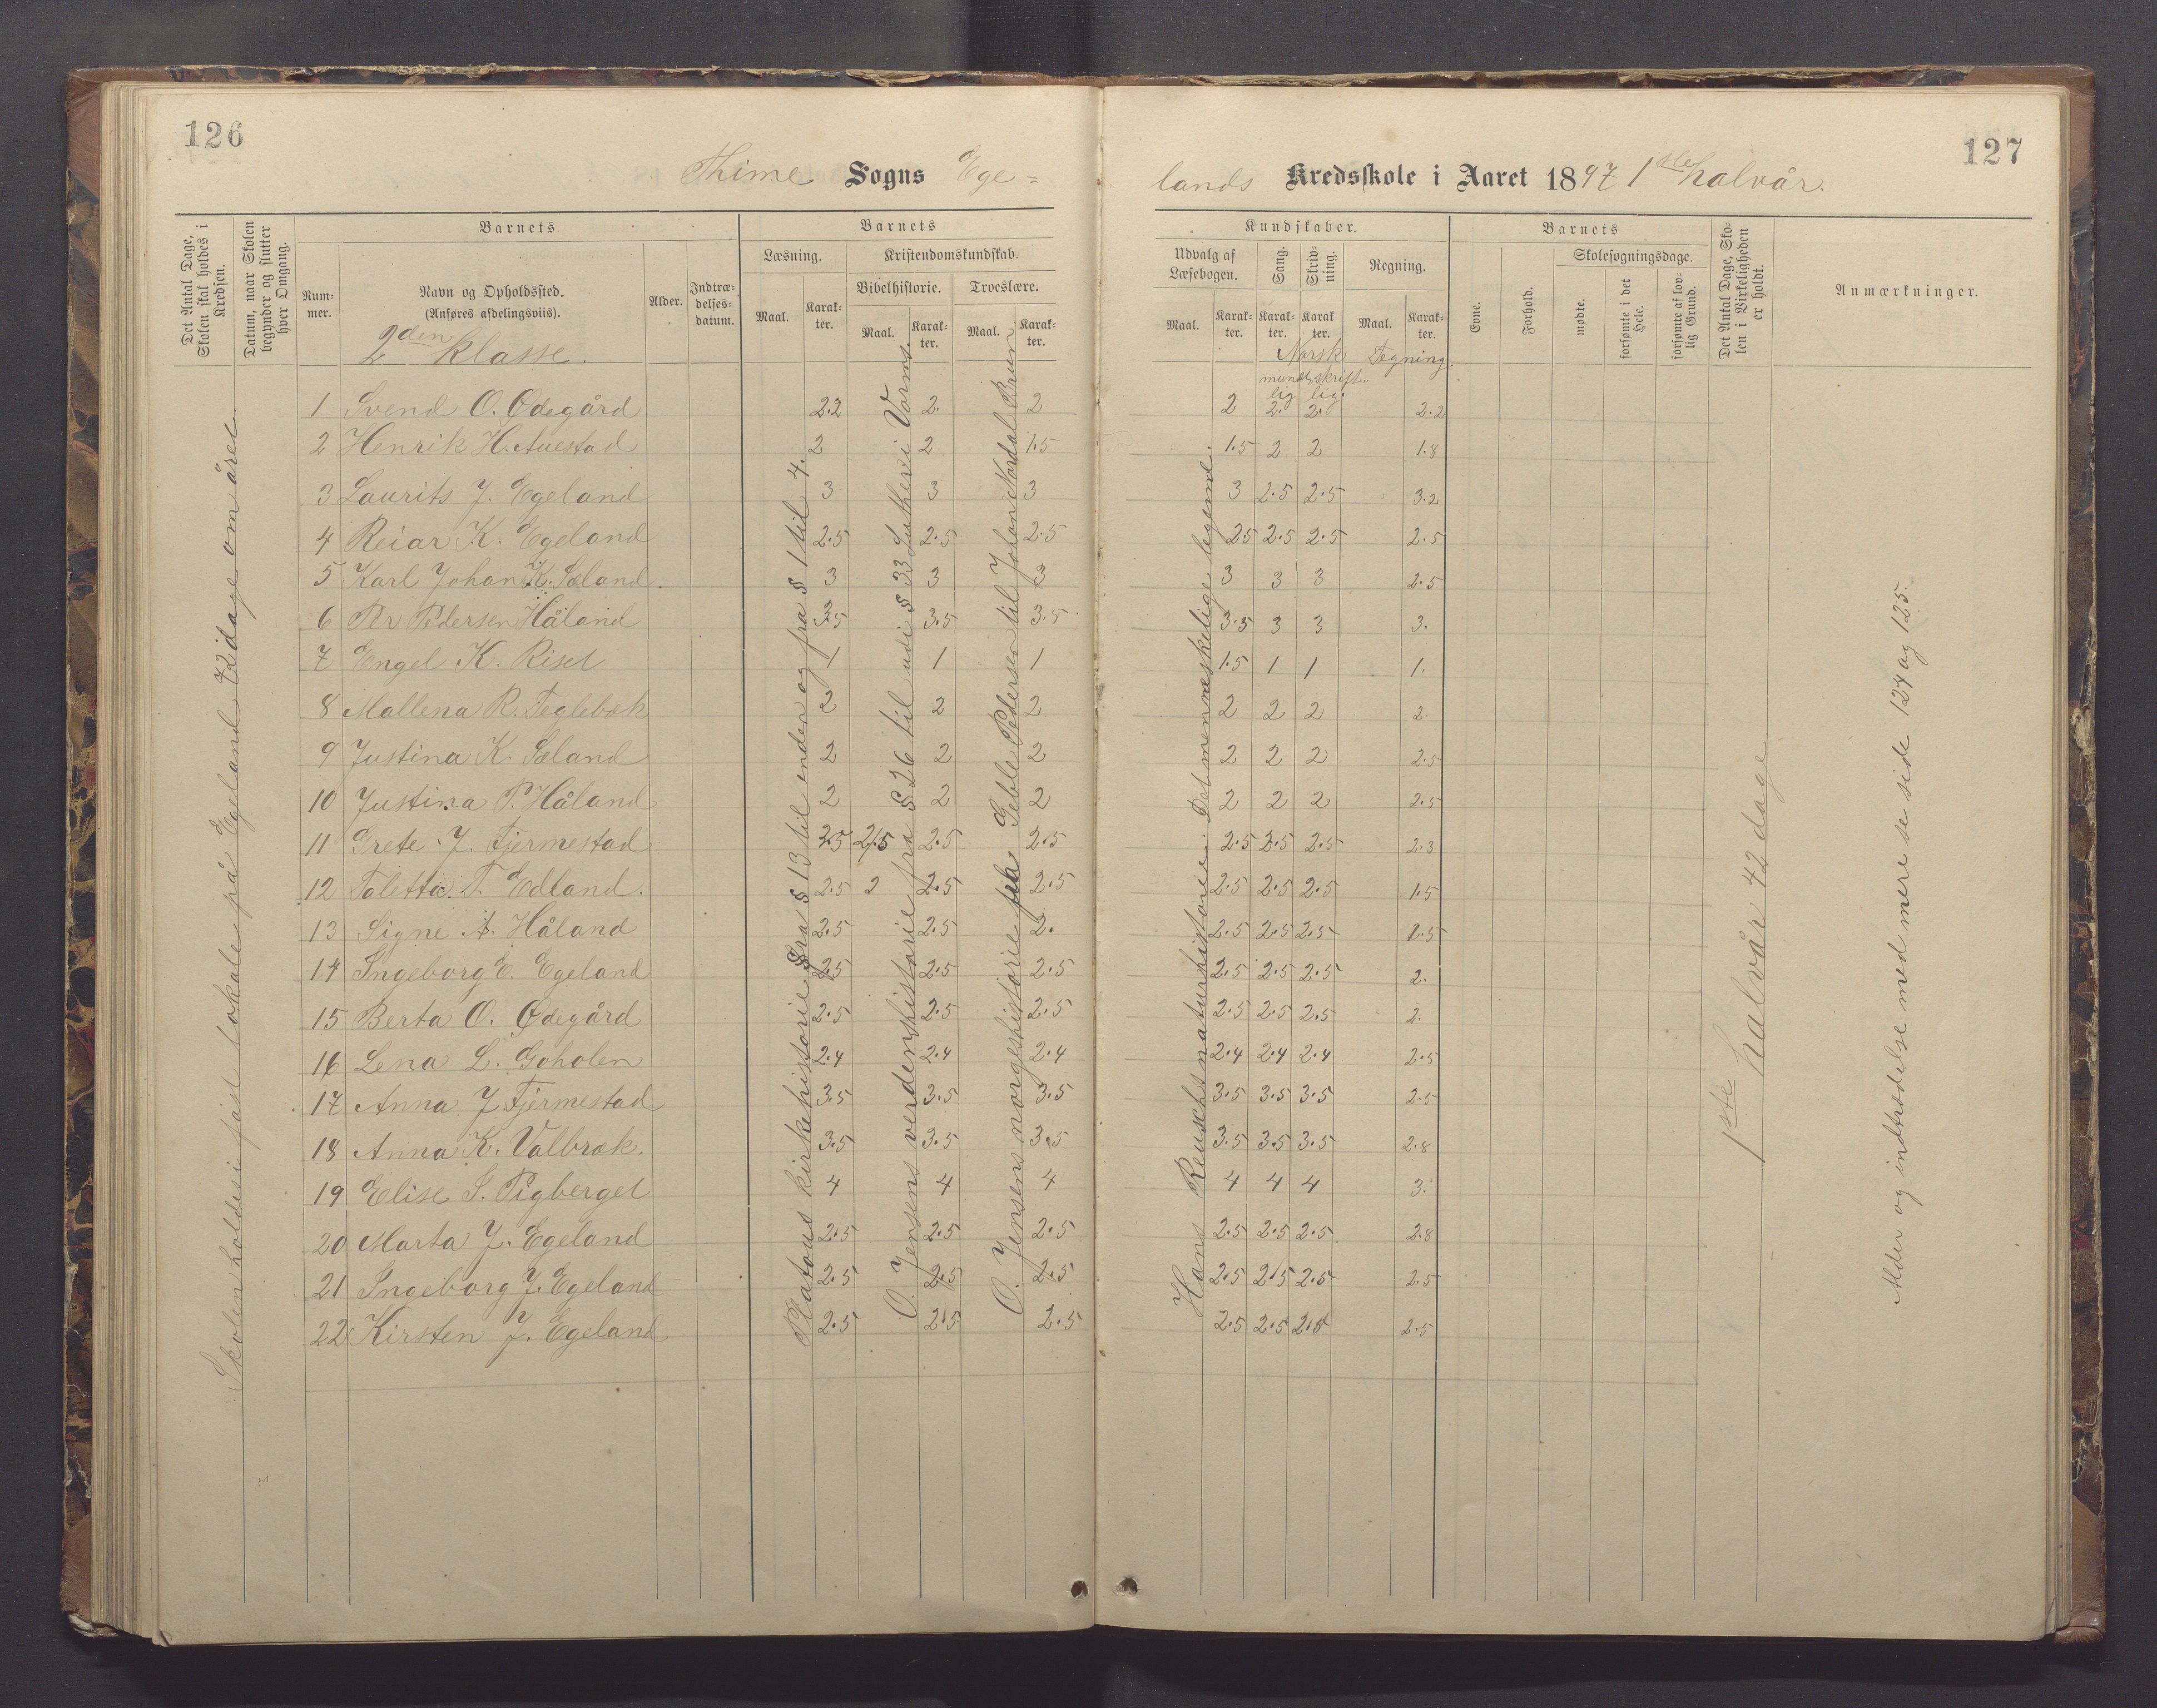 126
Thime Sogns Ege-
Det Antal Dage, Skolen skal holdes i Kredsen.
Datum, naar Skolen begynder og slutter hver Omgang.
Barnets
Nummer.
Navn og Opholdssted.
(Anføres afdelingsviis).
2den klasse.
Alder.
Indtrædelsesdatum.
Barnets
Læsning.
Kristendomskundskab.
Bibelhistorie.
Troeslære.
Maal.
Karakter.
Maal.
Karakter.
Maal.
Karakter.
1 Svend O. Ødegård 2.2 2. 2
2 Henrik H. Auestad 2 2 1.5
3 Laurits J. Egeland 3 3 3
4 Reiar K. Egeland 2.5 2.5 2.5
5 Karl Johan K. Sæland. 3 3 3
6 Per Pedersen Håland 3.5 3.5 3.5
7 Engel K. Riset 1 1 1
8 Mallena R. Teglebæk 2 2 2
9 Justina K. Sæland 2 2 2
10 Justina P. Håland 2 2 2
11 Grete J. Tjermestad 2.5 2.5 2.5 2.5
12 Taletta T. Edland. 2.5 2 2.5 2.5
13 Signe A. Håland 2.5 2.5 2.
14 Ingeborg E. Egeland 2.5 2.5 2.5
15 Berta O. Ødegård 2.5 2.5 2.5
16 Lena L. Goholen 2.4 2.4 2.4
17 Anna J. Tjermestad 3.5 3.5 3.5
18 Anna K. Valbræk. 3.5 3.5 3.5
19 Elise S. Tigberget 4 4 4
20 Marta J. Egeland 2.5 2.5 2.5
21 Ingeborg J. Egeland 2.5 2.5 2.5
22 Kirsten J. Egeland 2.5 2.5 2.5
Skolen holdes i fast lokale på Egeland 72 dage om året.
Platous kirkehistorie fra § 13 til enden og fra § 1 til 4.
O. Jensens verdenshistorie fra § 26 til udi § 33 Luther i Worms.
O. Jensens norgeshistorie fra Geble Pedersen til Johan Nordal Brun
127
lands Kredsskole i Aaret 1897 1ste halvår.
Kundskaber.
Udvalg af Læsebogen.
Sang.
Skrivning.
Regning.
Maal.
Karakter.
Karakter.
Karakter.
Maal.
Karakter.
Norsk Tegning.
mundtlig skriftlig.
Barnets
Evne.
Forhold.
Skolesøgningsdage.
mødte.
forsømte i det Hele.
forsømte af lovlig Grund.
Det Antal Dage, Skolen i Virkeligheden er holdt.
Anmærkninger.
2 2. 2. 2.2
1.5 2 2 1.8
3 2.5 2.5 3.2
2.5 2.5 2.5 2.5
3 3 3 2.5
3.5 3 3 3.
1.5 1 1 1.
2 2 2 2.
2 2 2 2.5
2 2 2 2.5
2.5 2.5 2.5 2.3
2.5 2.5 2.5 1.5
2.5 2.5 2.5 2.5
2.5 2.5 2.5 2.
2.5 2.5 2.5 2.
2.4 2.4 2.4 2.5
3.5 3.5 3.5 2.5
3.5 3.5 3.5 2.8
4 4 4 3.
2.5 2.5 2.5 2.8
2.5 2.5 2.5 2.5
2.5 2.5 2.5 2.5
Hans Reusch's naturhistorie. Det menneskelige legeme.
1ste halvår 42 dage
Alder og indtrædelse med mere se side 124 og 125.